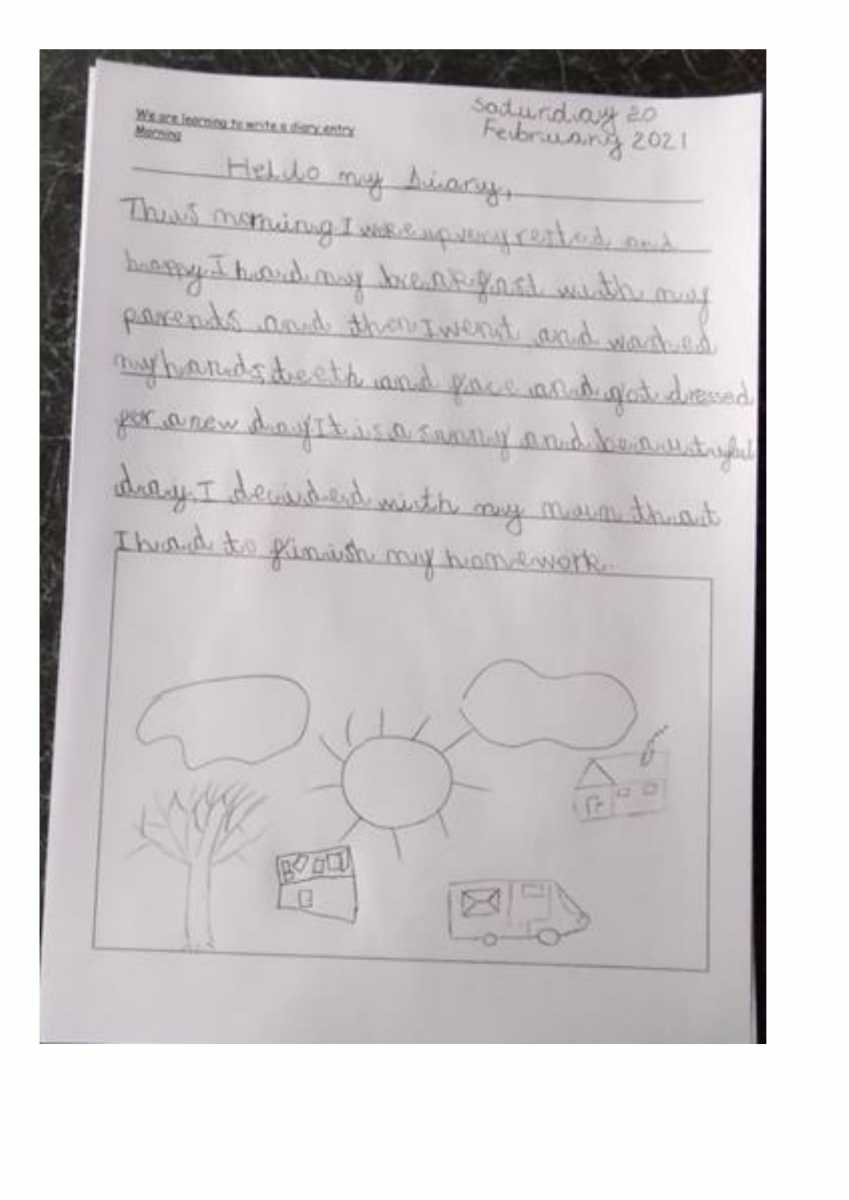 Saturday 20
February 2021
We are learning to write a diary entry
Morning
Hello my diary,
This morning I woke up very rested and
happy. I had my breakfast with my
parents and then I went and washed
my hands, teeth and face and got dressed
for a new day It is a sunny and beautyful
day. I decided with my mum that
I had to finish my homework.